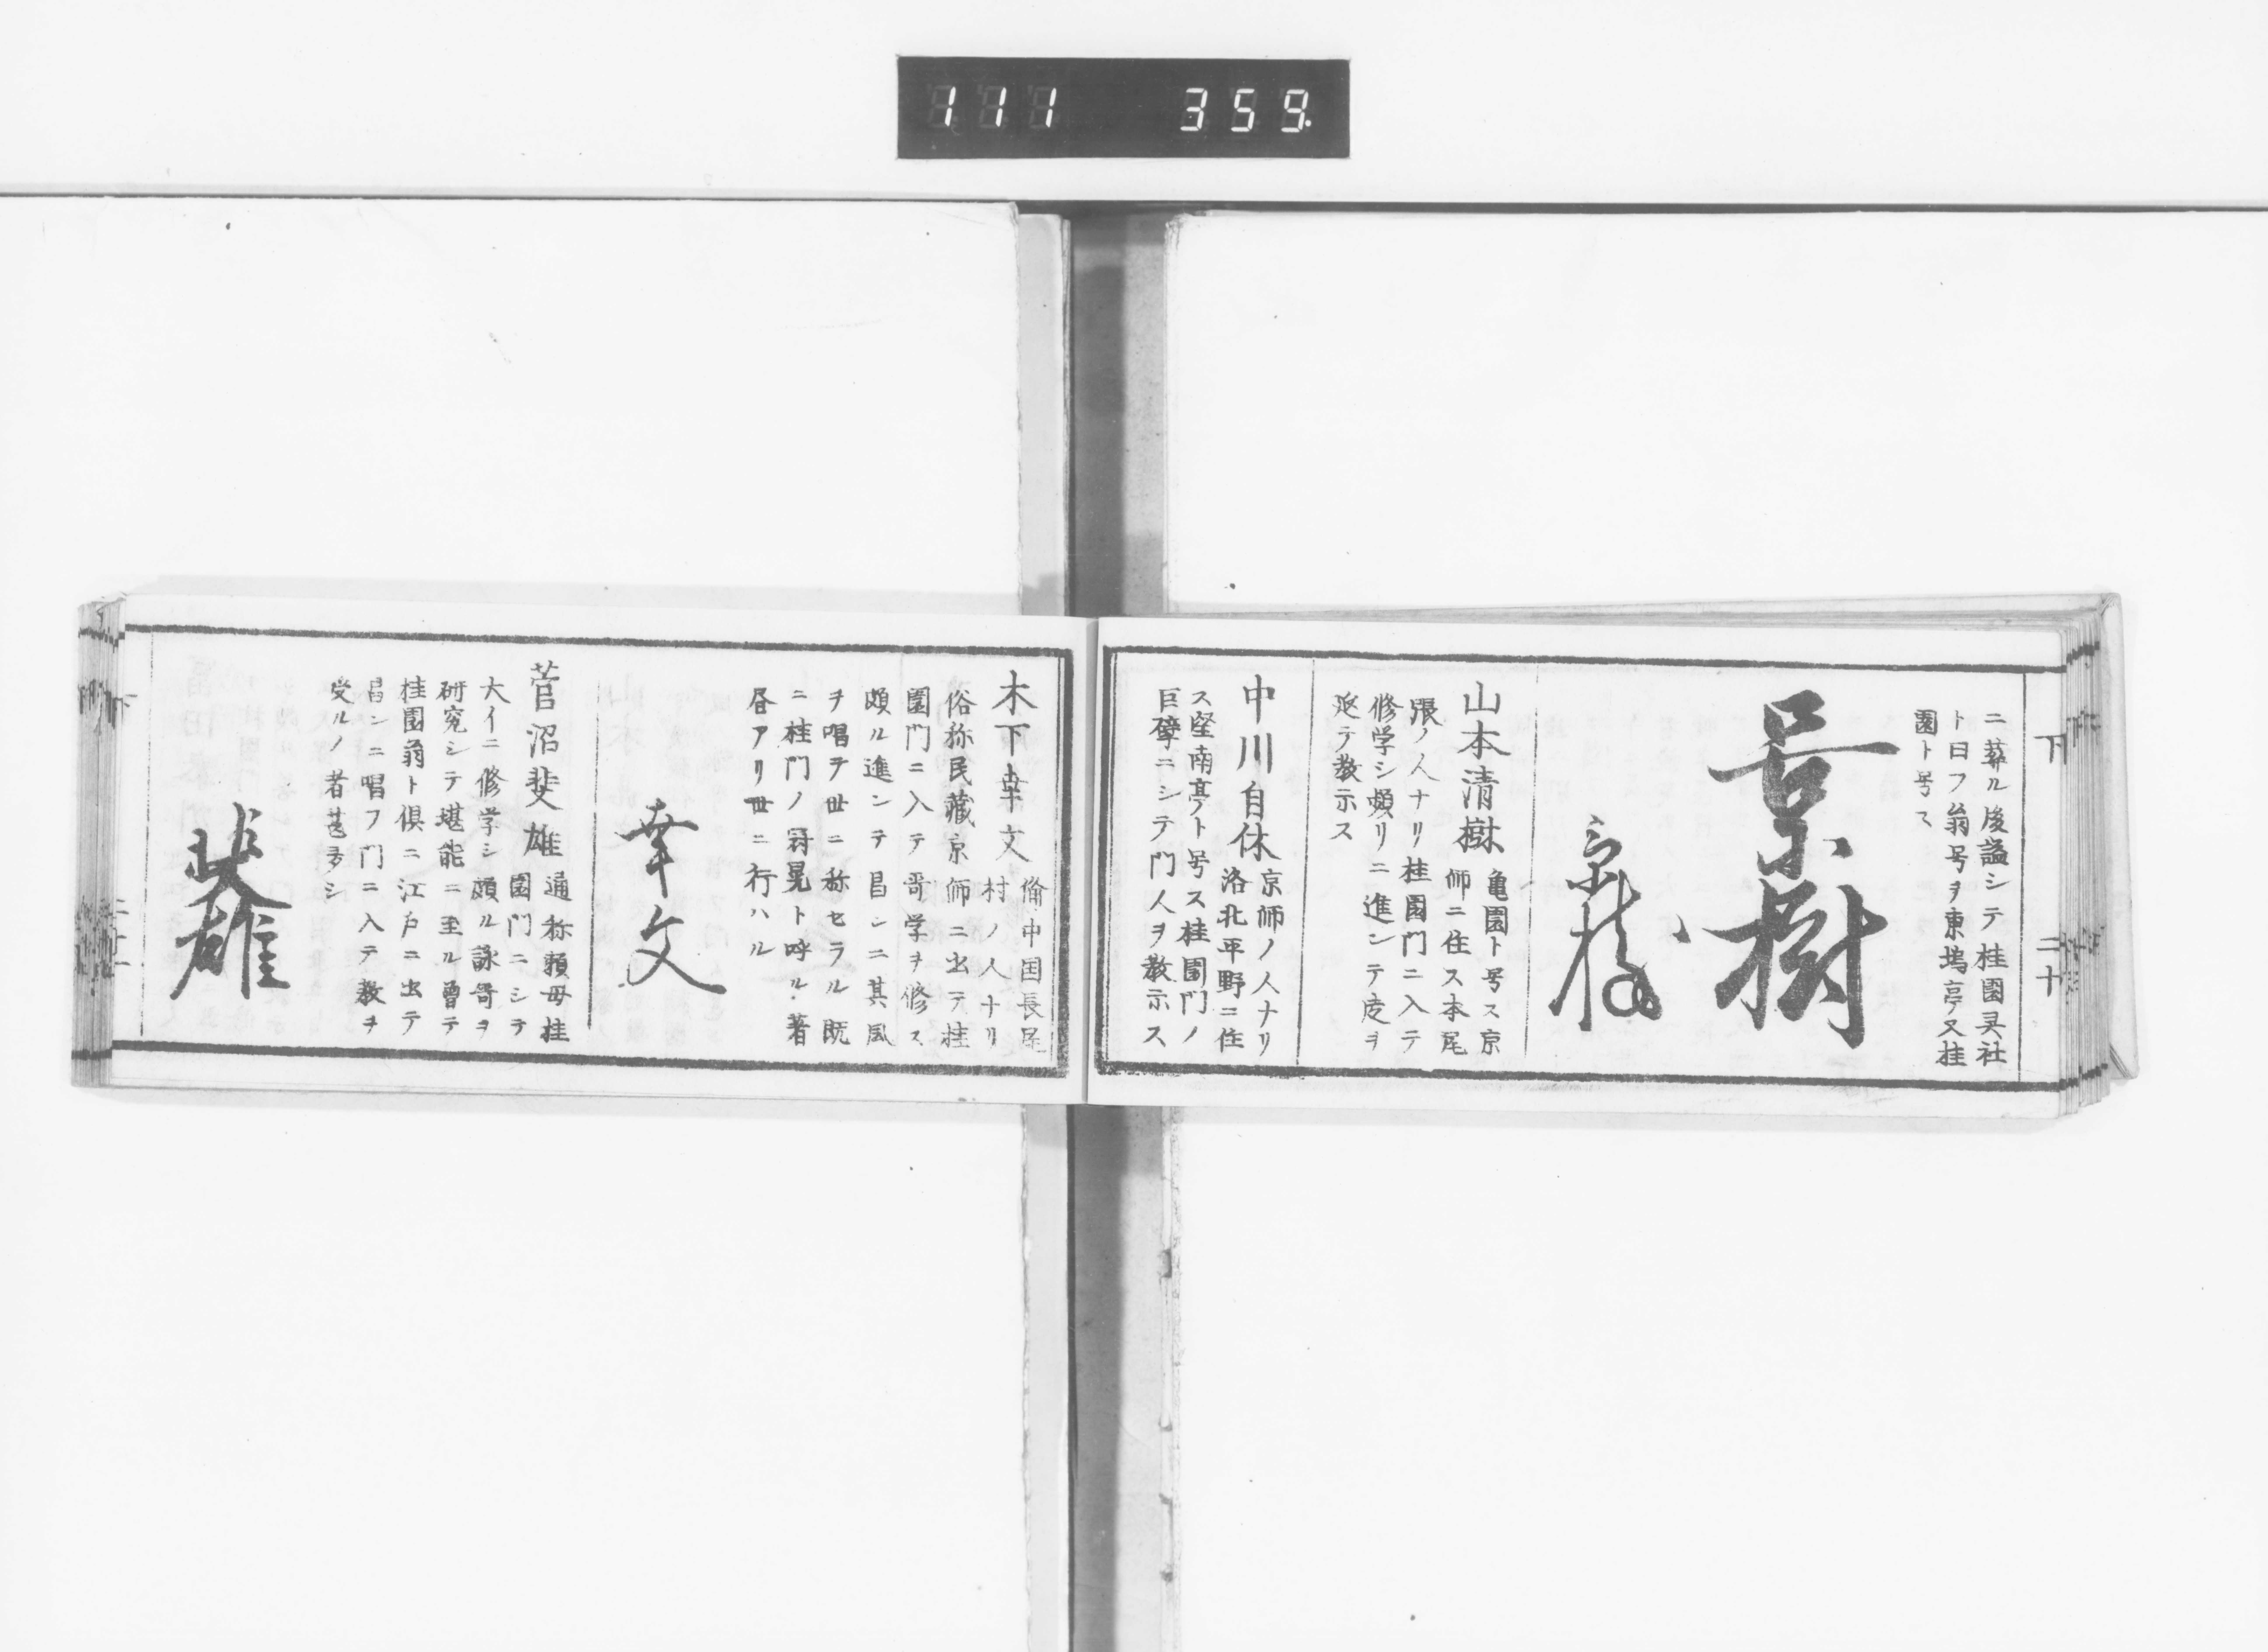 111 359.
下 二十
ニ葬ル後謚シテ桂園㚑社
ト曰フ翁号ヲ東塢亭又桂
園ト号ス
景樹
景樹
山本清樹 亀園ト号ス京
師ニ住ス本尾
張ノ人ナリ桂園門ニ入テ
修学シ頻リニ進ンテ度ヲ
延テ教示ス
中川自休 京師ノ人ナリ
洛北平野ニ住
ス堅南亭ト号ス桂園門ノ
巨擘ニシテ門人ヲ教示ス
木下幸文 偹中国長尾
村ノ人ナリ
俗称民藏京師ニ出テ桂
園門ニ入テ哥学ヲ修ス
頗ル進ンテ昌ンニ其風
ヲ唱ヲ世ニ称セラル既
ニ桂門ノ冠冕ト呼ル著
昏アリ世ニ行ハル
幸文
菅沼斐雄 通称頼母桂
園門ニシテ
大イニ修学シ頗ル詠哥ヲ
研究シテ堪能ニ至ル曽テ
桂園翁ト倶ニ江戸ニ出テ
昌ンニ唱フ門ニ入テ教ヲ
受ルノ者甚多シ
斐雄
下 二十一